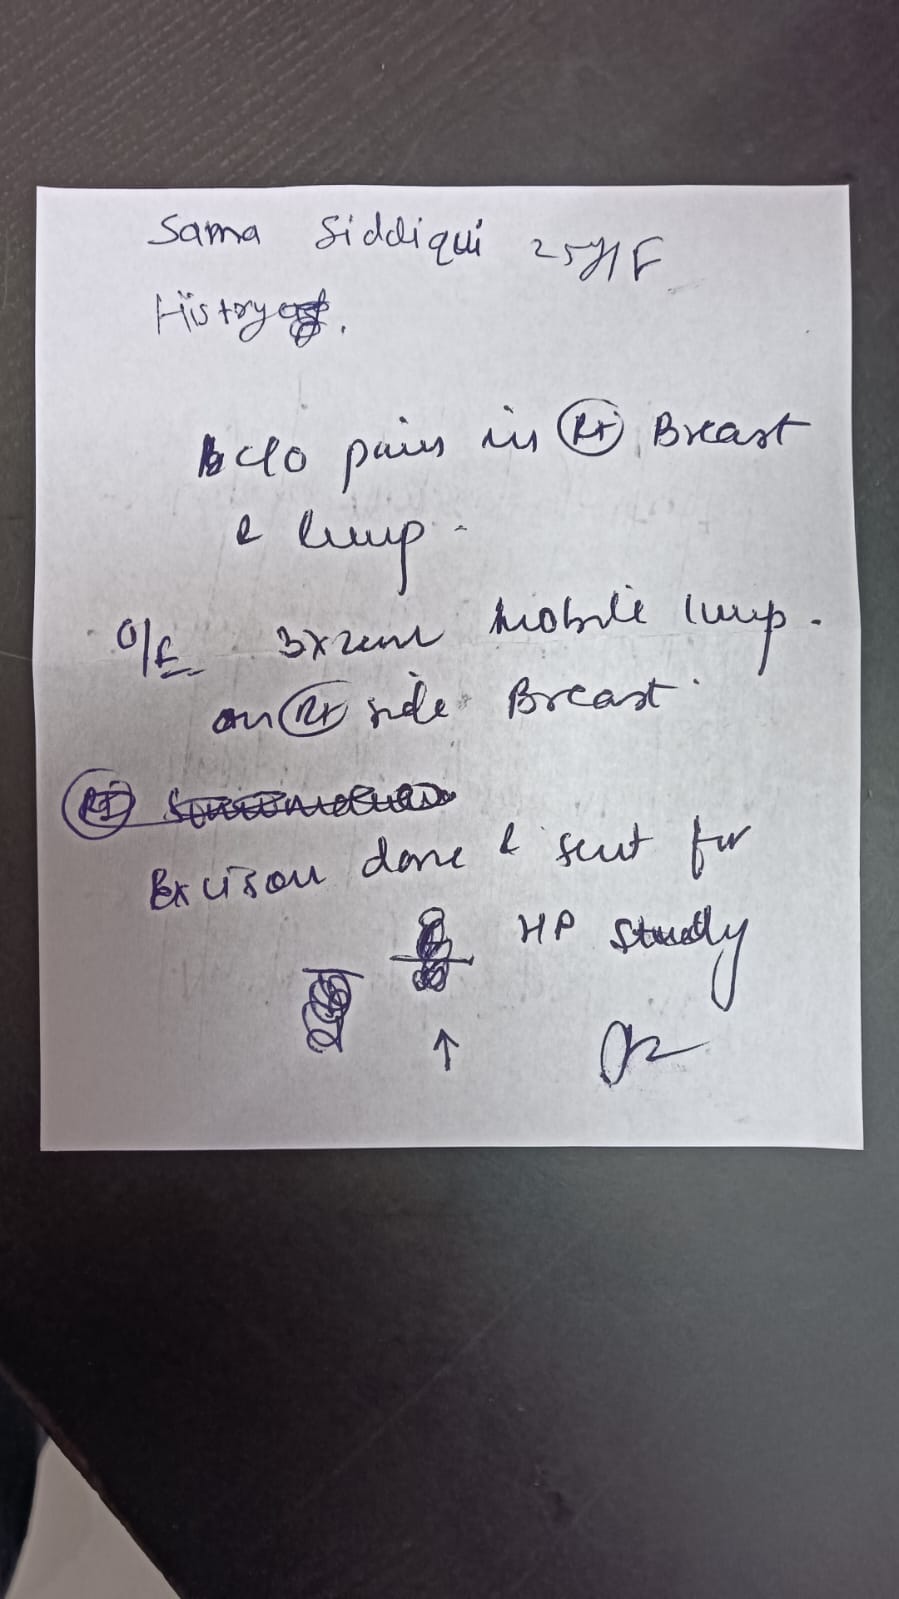 Sama Siddiqui 25y/F
History
c/o pain in Rt Breast
& lump.
O/E 3x2cm mobile lump.
on Rt side Breast.
Rt
Excison done & sent for
HP Study